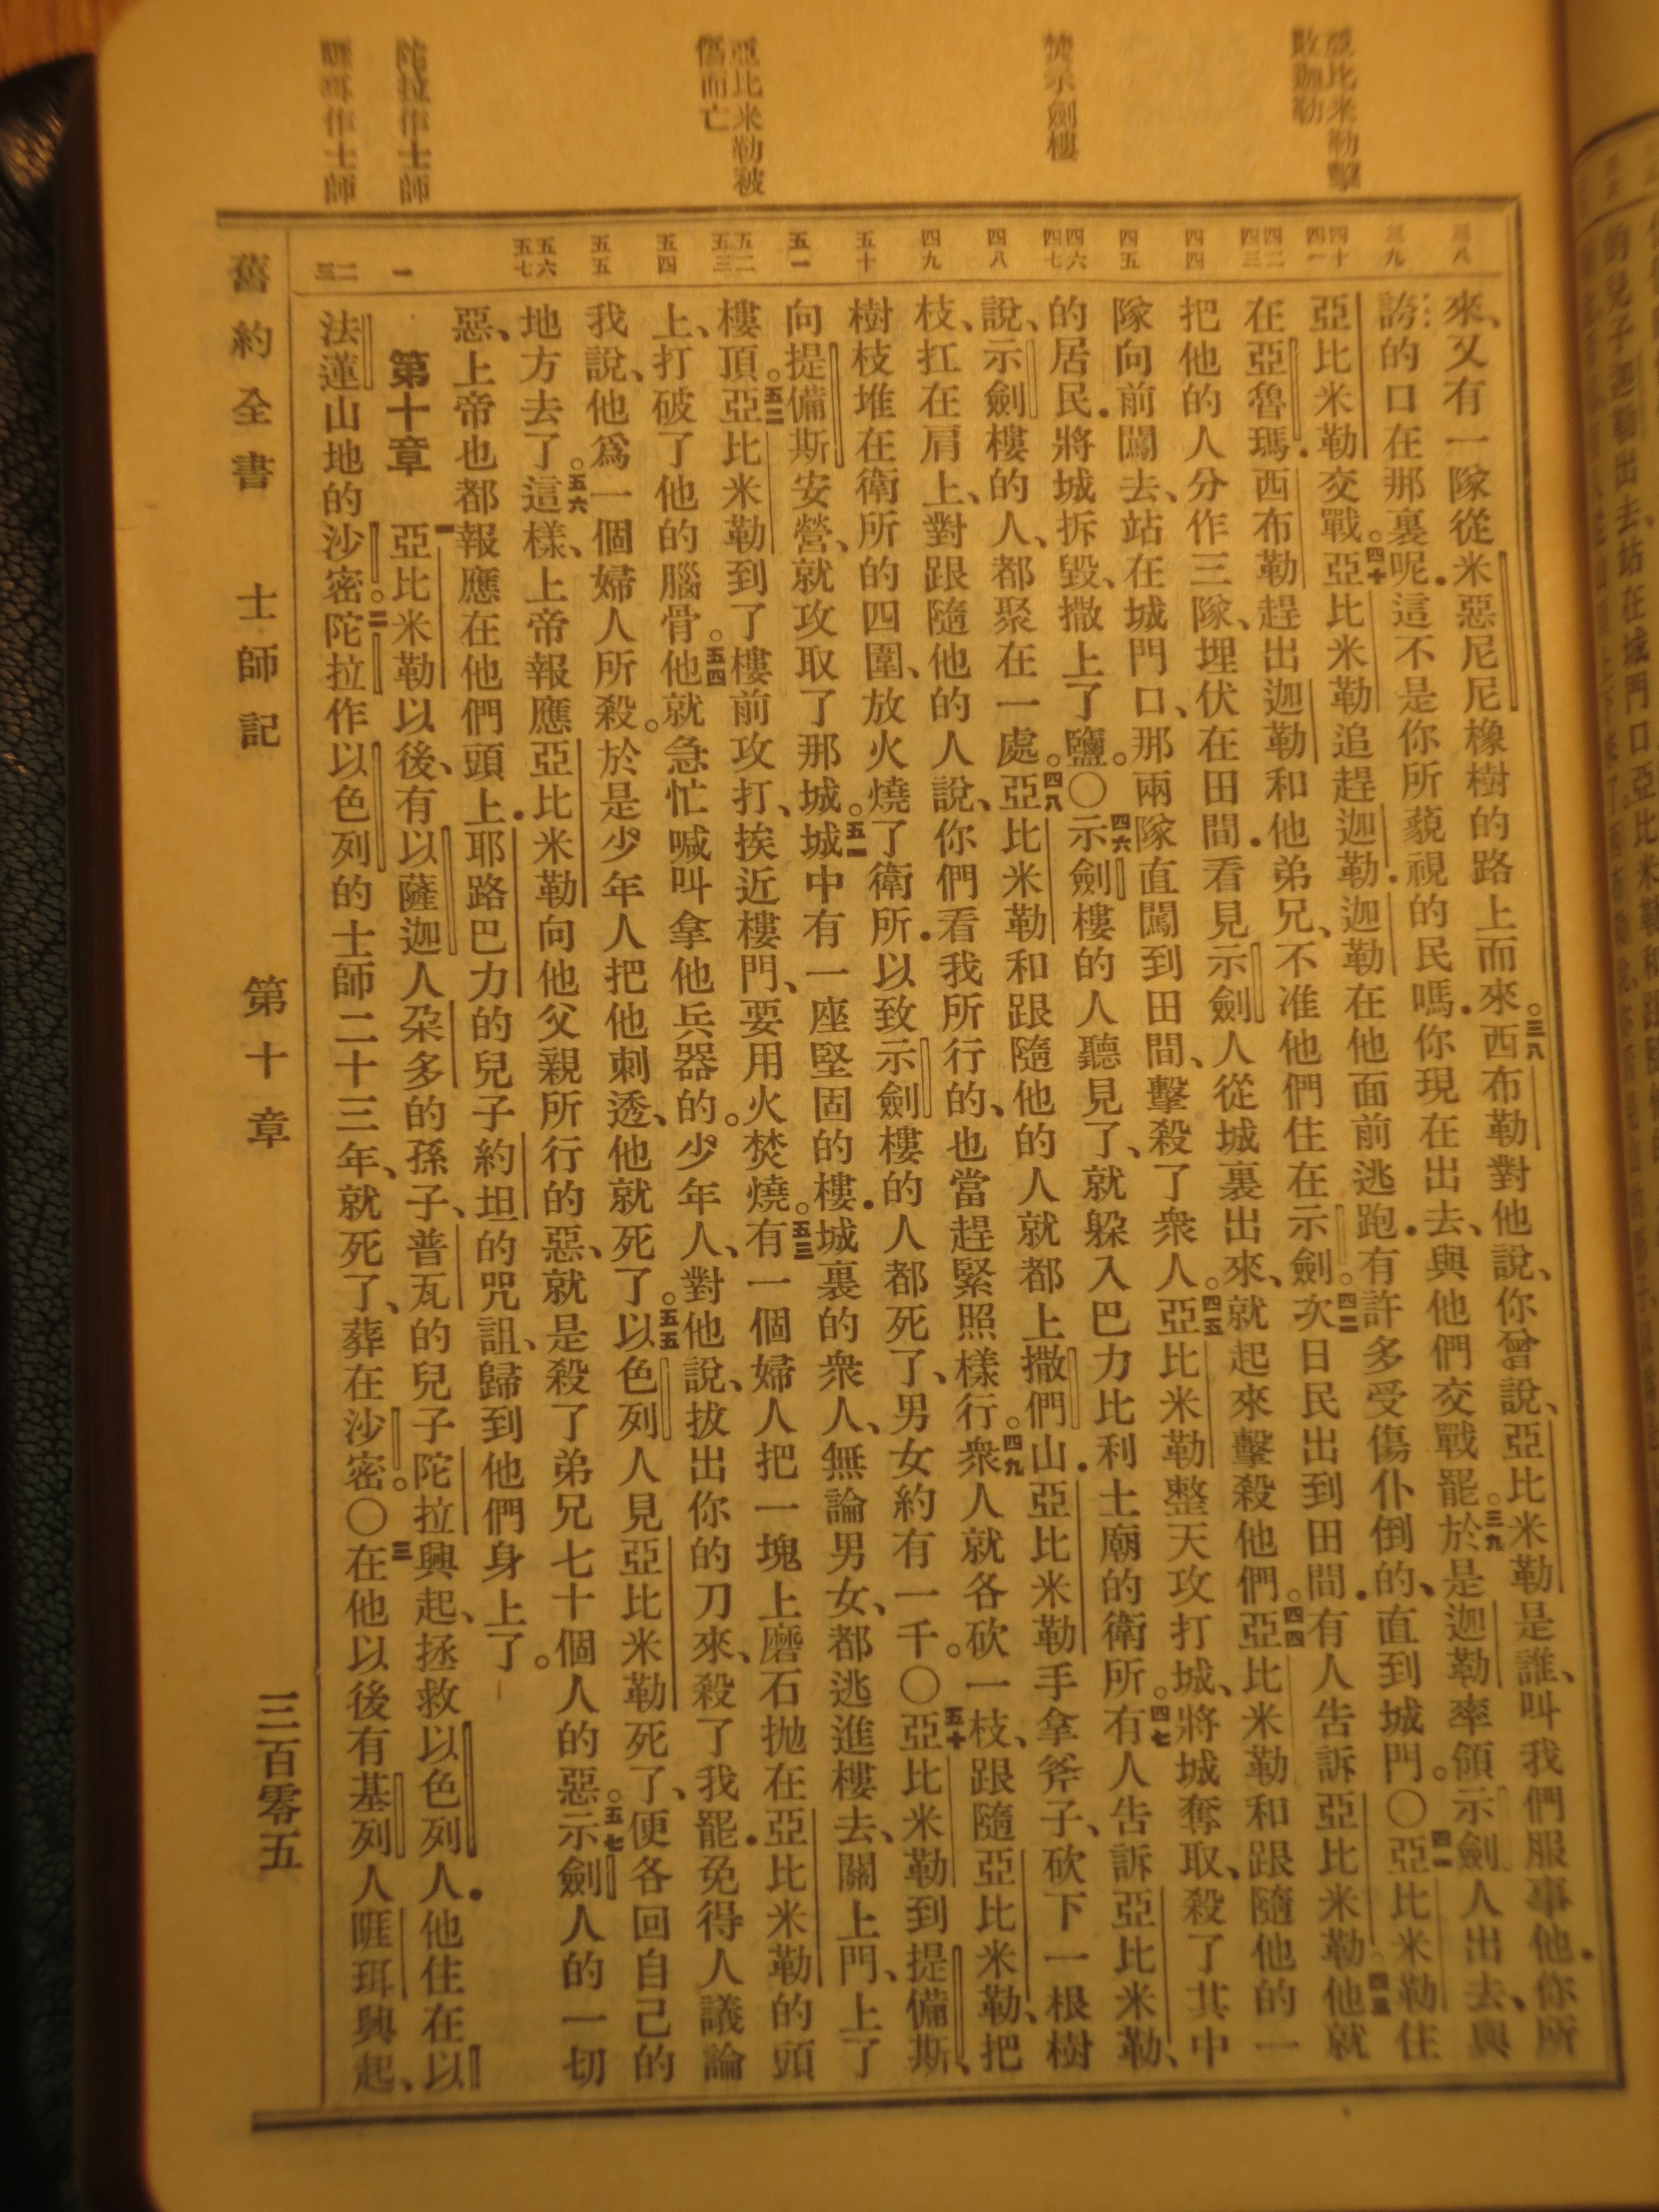 亞比米勒擊
敗迦勒
焚示劍樓
亞比米勒被
傷而亡
陀拉作士師
睚珥作士師
三八
三九
四十
四一
四二
四三
四四
四五
四六
四七
四八
四九
五十
五一
五二
五三
五四
五五
五六
五七
一
二
三
來、又有一隊從米惡尼尼橡樹的路上而來。三八西布勒對他說、你曾說、亞比米勒是誰、叫我們服事他．你所
誇的口在那裏呢．這不是你所藐視的民嗎．你現在出去、與他們交戰罷。三九於是迦勒率領示劍人出去、與
亞比米勒交戰。四十亞比米勒追趕迦勒．迦勒在他面前逃跑．有許多受傷仆倒的、直到城門。〇四一亞比米勒住
在亞魯瑪．西布勒趕出迦勒和他弟兄、不准他們住在示劍。四二次日民出到田間．有人告訴亞比米勒四三他就
把他的人分作三隊、埋伏在田間．看見示劍人從城裏出來、就起來擊殺他們。四四亞比米勒和跟隨他的一
隊向前闖去、站在城門口、那兩隊直闖到田間、擊殺了衆人。四五亞比米勒整天攻打城、將城奪取、殺了其中
的居民．將城拆毀、撒上了鹽。〇四六示劍樓的人聽見了、就躲入巴力比利土廟的衛所。四七有人告訴亞比米勒、
說、示劍樓的人、都聚在一處。四八亞比米勒和跟隨他的人就都上撒們山．亞比米勒手拿斧子、砍下一根樹
枝、扛在肩上、對跟隨他的人說、你們看我所行的、也當趕緊照樣行。四九衆人就各砍一枝、跟隨亞比米勒、把
樹枝堆在衛所的四圍、放火燒了衛所．以致示劍樓的人都死了、男女約有一千。〇五十亞比米勒到提備斯、
向提備斯安營、就攻取了那城。五一城中有一座堅固的樓．城裏的衆人、無論男女、都逃進樓去、關上門、上了
樓頂。五二亞比米勒到了樓前攻打、挨近樓門、要用火焚燒。五三有一個婦人把一塊上磨石拋在亞比米勒的頭
上、打破了他的腦骨。五四他就急忙喊叫拿他兵器的。少年人、對他說、拔出你的刀來、殺了我罷．免得人議論
我說、他爲一個婦人所殺。於是少年人把他刺透、他就死了。五五以色列人見亞比米勒死了、便各回自己的
地方去了。五六這樣、上帝報應亞比米勒向他父親所行的惡、就是殺了弟兄七十個人的惡。五七示劍人的一切
惡、上帝也都報應在他們頭上．耶路巴力的兒子約坦的咒詛、歸到他們身上了。
第十章　一亞比米勒以後、有以薩迦人朶多的孫子、普瓦的兒子陀拉興起、拯救以色列人．他住在以
法蓮山地的沙密。二陀拉作以色列的士師二十三年、就死了、葬在沙密。〇三在他以後有基列人睚珥興起、
舊約全書　士師記　第十章　三百零五